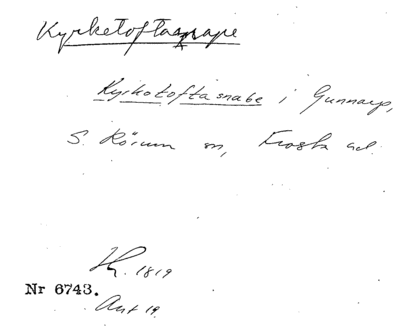 Kyrketoftasnape
Kyrkotoftasnabe i Gunnarp,
S. Rörum sn, Frosta hd.
1819
Nr 6743.
Ant 19